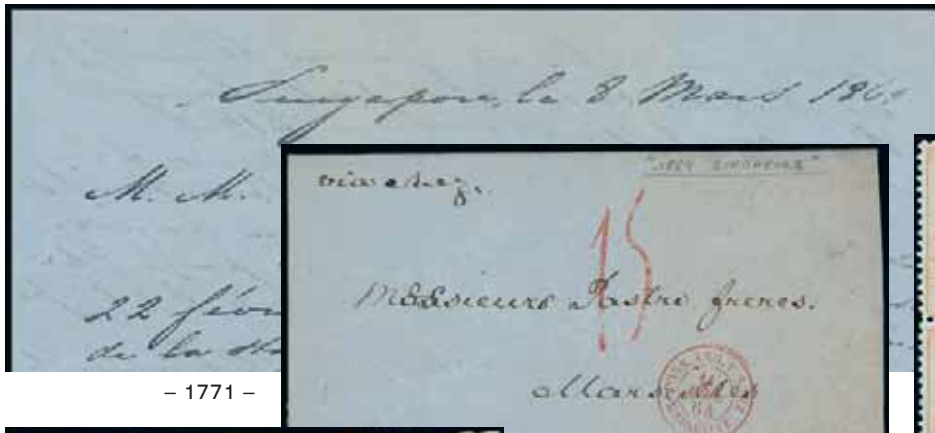 Singapore, le 8 Mars 186
M. M.
22 févr
de la
"1864 SINGAPOUR"
via Suez.
15
Messieurs Pastré frères.
Marseilles
64
– 1771 –